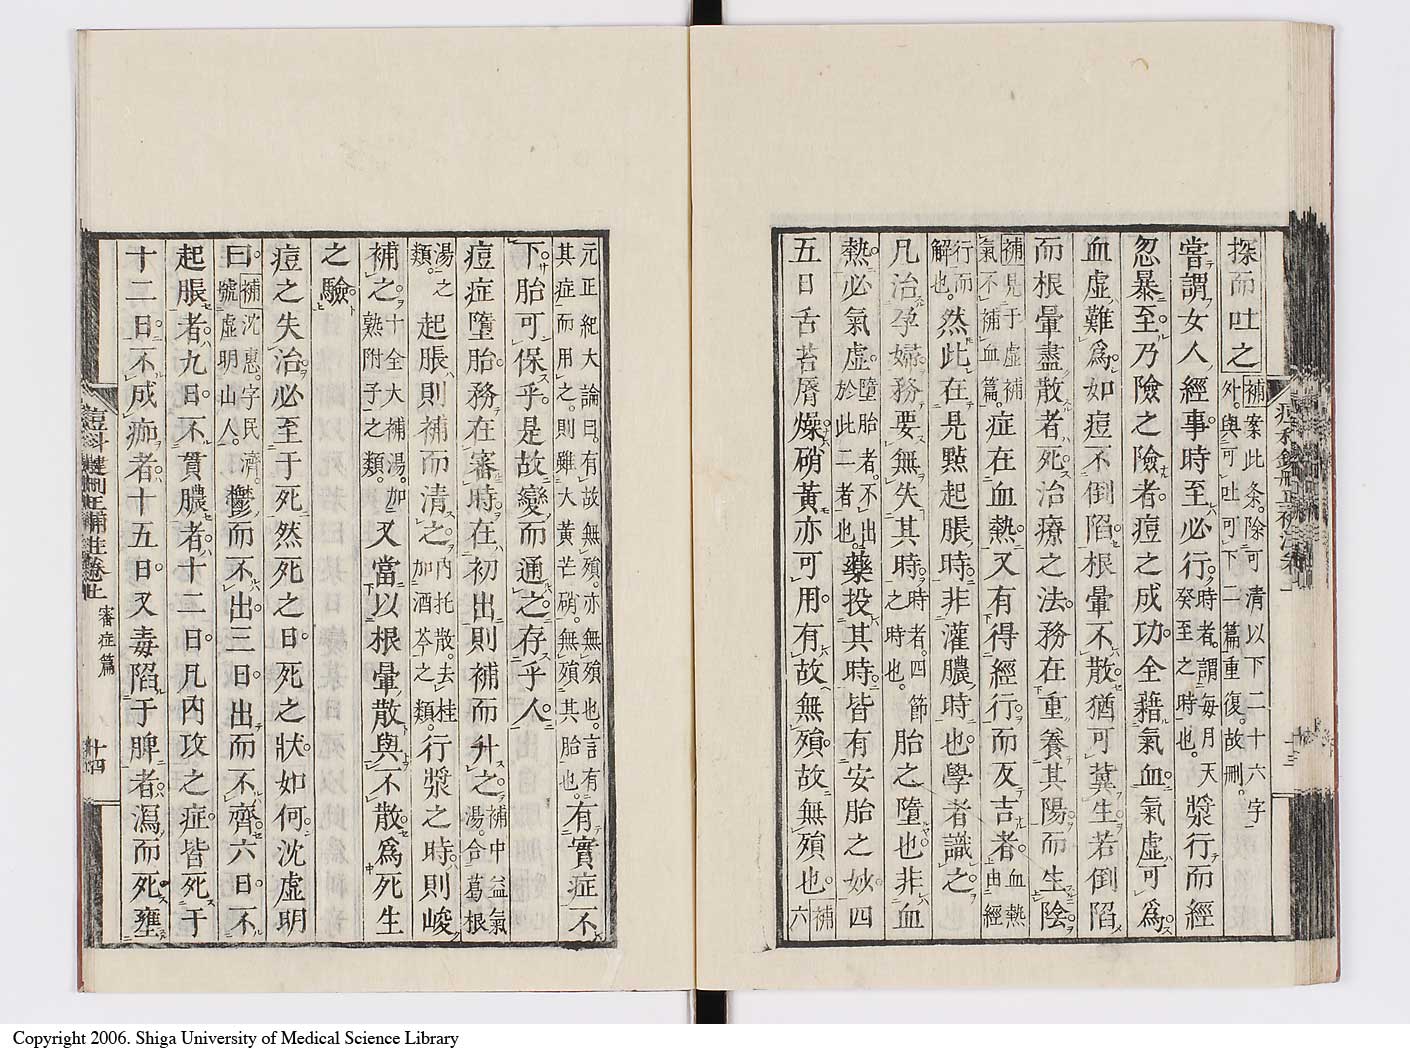 探而吐之補案此条除可清以下二十六字外與可吐可下二篇重復故刪
嘗謂女人經事時至必行時者謂每月天癸至之時也漿行而經
忽暴至乃險之險者痘之成功全藉氣血氣虛可爲
血虛難爲如痘不倒陷根暈不散猶可冀生若倒陷
而根暈盡散者死治療之法務在重養其陽而生陰
補見于虛補氣不補血篇症在血熱又有得經行而反吉者血熱由經
行而解也然此在見點起脹時非灌膿時也學者識之
凡治孕婦務要無失其時時者四節之時也胎之墮也非血
熱必氣虛墮胎者不出於此二者也藥投其時皆有安胎之妙四
五日舌苔厚燥硝黃亦可用有故無殞故無殞也補六
元正紀大論曰有故無殞亦無殞也言有其症而用之則雖大黃芒硝無殞其胎也有實症不
下胎可保乎是故變而通之存乎人
痘症墮胎務在審時在初出則補而升之補中益氣湯合葛根
湯之類起脹則補而清之內托散去桂加酒芩之類行漿之時則峻
補之十全大補湯加熟附子之類又當以根暈散與不散爲死生
之驗
痘之失治必至于死然死之日死之狀如何沈虛明
曰補沈惠字民濟號虛明山人鬱而不出三日出而不齊六日不
起脹者九日不貫膿者十二日凡內攻之症皆死于
十二日不成痂者十五日又毒陷于脾者瀉而死壅
痘科鍵刪正補註卷上
審症篇
十四
十三